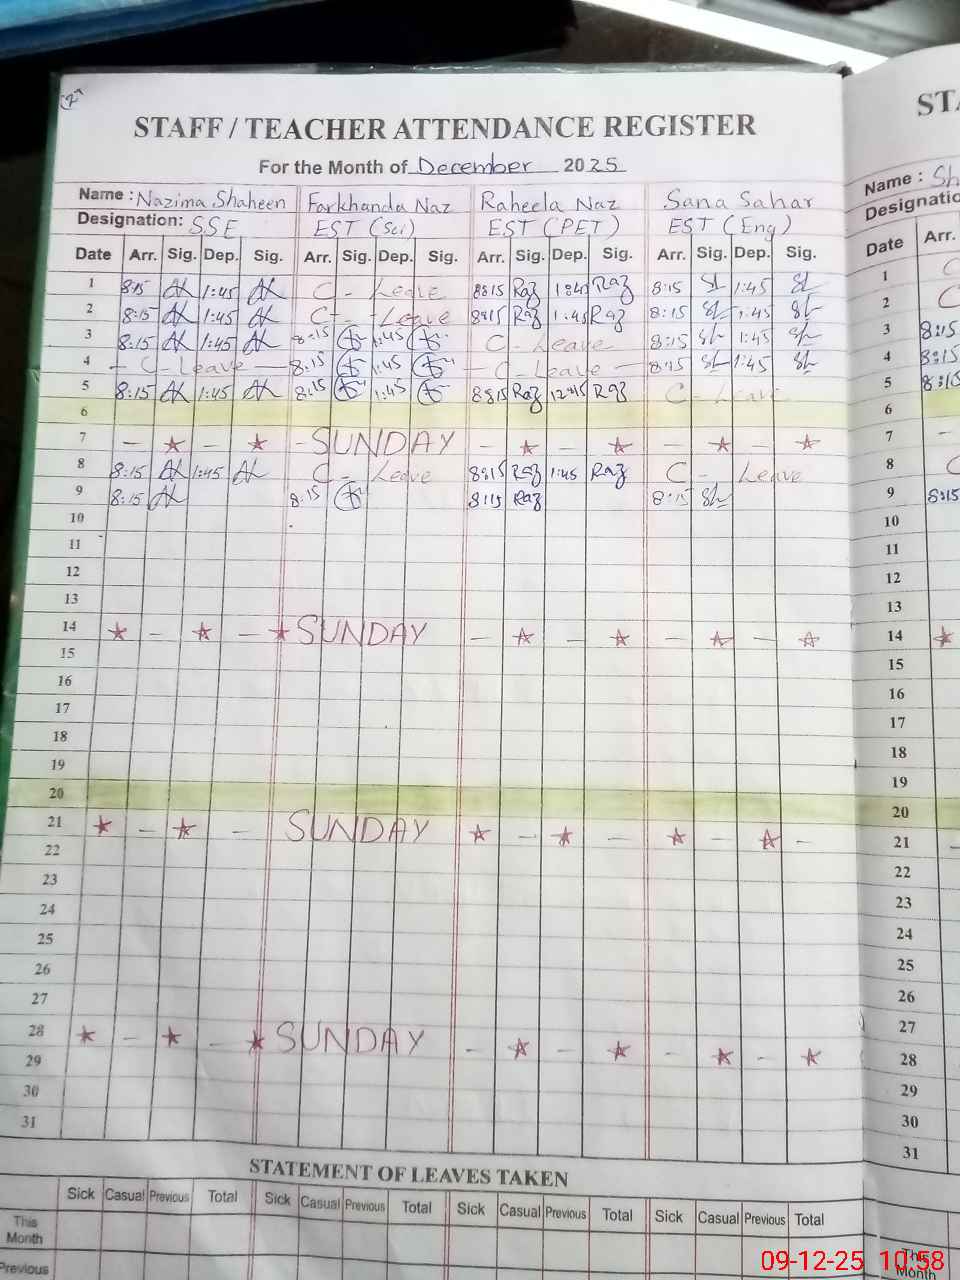 STAFF / TEACHER ATTENDANCE REGISTER
For the Month of December 2025
Name : Nazima Shaheen Farkhanda Naz Raheela Naz Sana Sahar
Designation: SSE EST (Sci) EST (PET) EST (Eng)
Date Arr. Sig. Dep. Sig. Arr. Sig. Dep. Sig. Arr. Sig. Dep. Sig. Arr. Sig. Dep. Sig.
1 8:15 1:45 C - Leave 8:15 Raz 1:45 Raz 8:15 1:45
2 8:15 1:45 C - Leave 8:15 Raz 1:45 Raz 8:15 1:45
3 8:15 1:45 8:15 1:45 C - Leave 8:15 1:45
4 - C - Leave - 8:15 1:45 - C - Leave - 8:15 1:45
5 8:15 1:45 8:15 1:45 8:15 Raz 12:45 Raz C - Leave
6
7 - ★ - ★ - SUNDAY - ★ - ★ - ★ - ★
8 8:15 1:45 C - Leave 8:15 Raz 1:45 Raz C - Leave
9 8:15 8:15 8:15 Raz 8:15
10
11
12
13
14 ★ - ★ - ★ SUNDAY - ★ - ★ - ★ - ★
15
16
17
18
19
20
21 ★ - ★ - SUNDAY ★ - ★ - ★ - ★ -
22
23
24
25
26
27
28 ★ - ★ - ★ SUNDAY - ★ - ★ - ★ - ★
29
30
31
STATEMENT OF LEAVES TAKEN
Sick Casual Previous Total Sick Casual Previous Total Sick Casual Previous Total Sick Casual Previous Total
This
Month
Previous
Name : Sh
Date Arr.
1
2
3 8:15
4 8:15
5 8:15
6
7 -
8
9 8:15
10
11
12
13
14 ★
15
16
17
18
19
20
21 -
22
23
24
25
26
27
28
29
30
31
This
Month
09-12-25 10:58